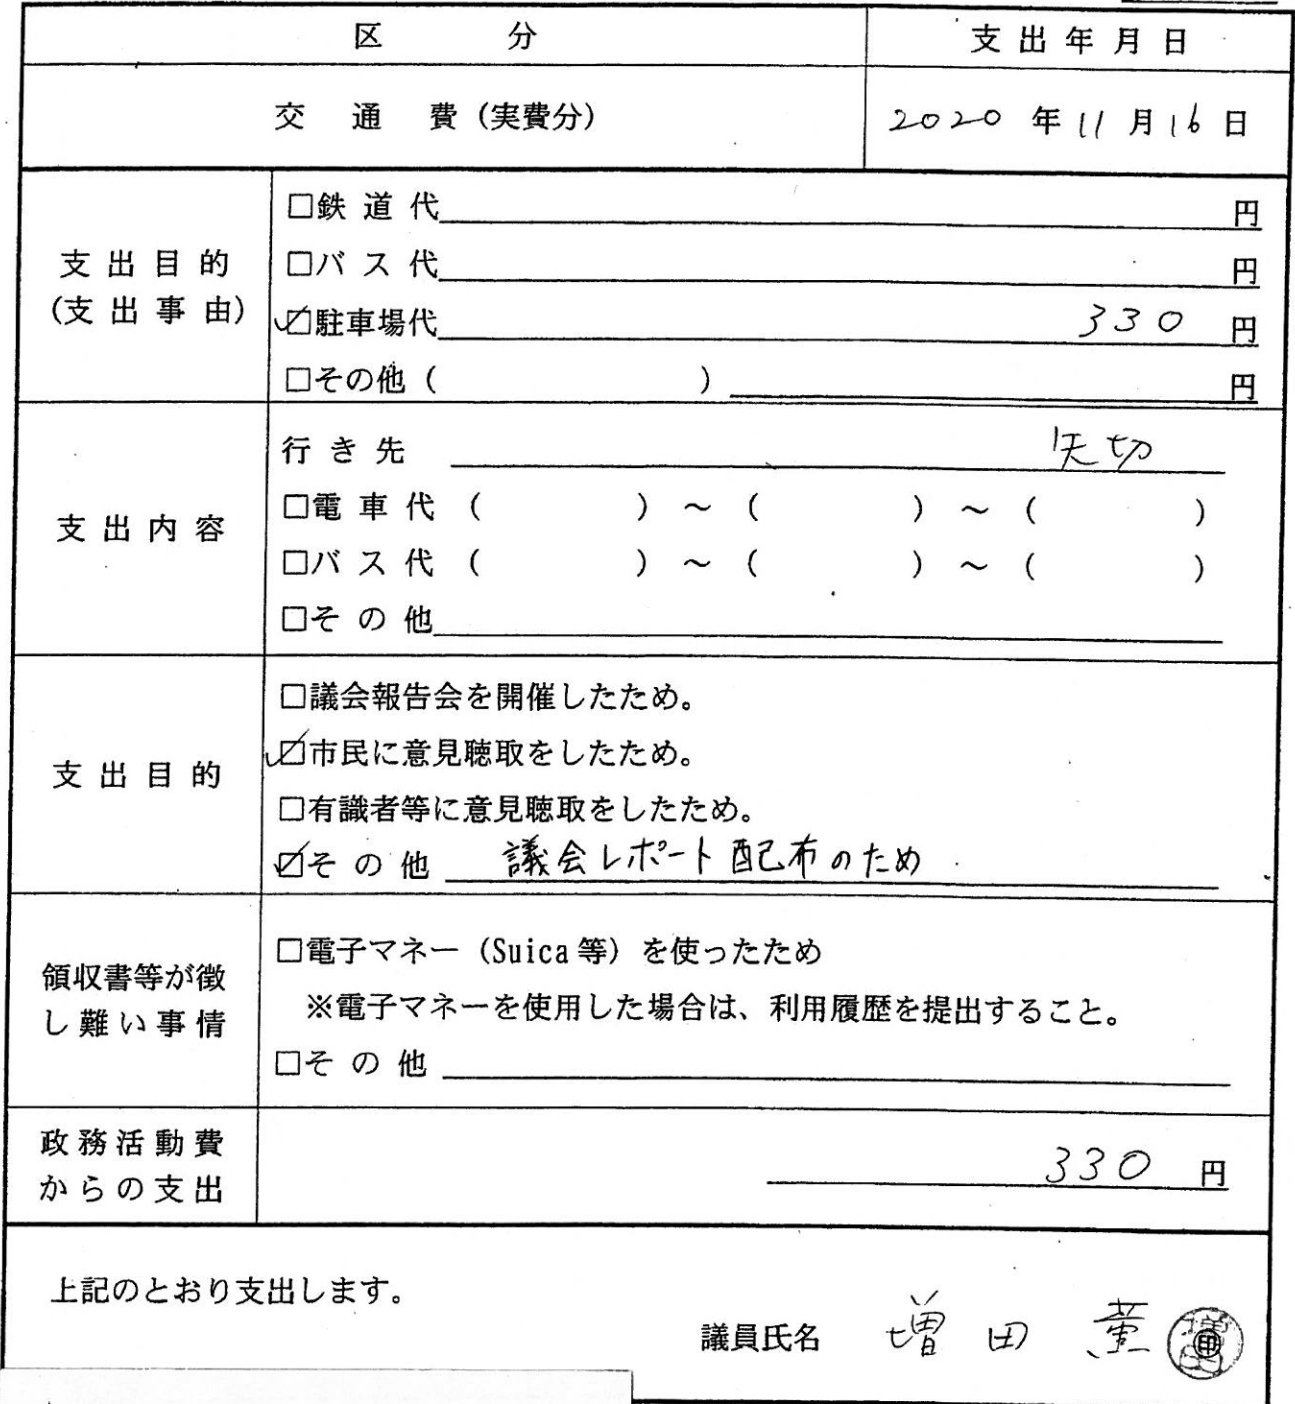 区 分 支出年月日
交 通 費(実費分) 2020 年 11 月 16 日
支出目的
(支出事由)
□鉄道代 円
□バス代 円
☑駐車場代 330 円
□その他( ) 円
支出内容
行き先 矢切
□電車代( )~( )~( )
□バス代( )~( )~( )
□その他
支出目的
□議会報告会を開催したため。
☑市民に意見聴取をしたため。
□有識者等に意見聴取をしたため。
☑その他 議会レポート配布のため
領収書等が徴
し難い事情
□電子マネー(Suica等)を使ったため
※電子マネーを使用した場合は、利用履歴を提出すること。
□その他
政務活動費
からの支出
330 円
上記のとおり支出します。
議員氏名 増田 薫 ㊞
増田